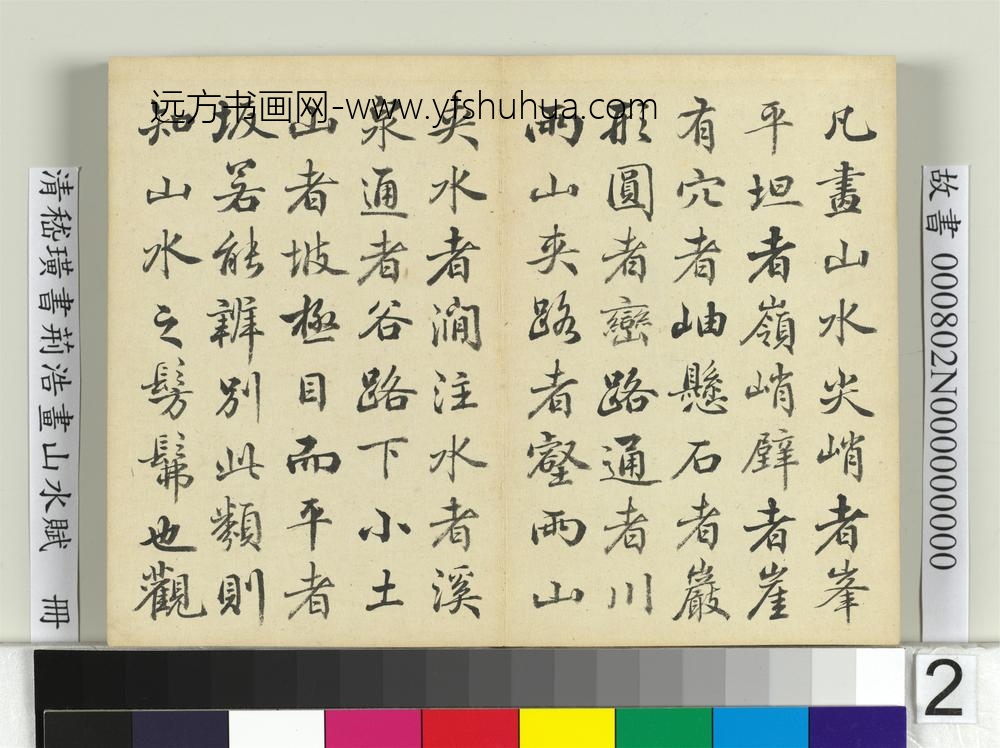 远方书画网-www.yfshuhua.com
凡畫山水尖峭者峯
平坦者嶺峭壁者崖
有穴者岫懸石者巖
形圓者巒路通者川
兩山夾路者壑兩山
夾水者澗注水者溪
泉通者谷路下小土
山者坡極目而平者
坂若能辨別此類則
知山水之髣髴也觀
故書 000802N000000000
清嵇璜書荊浩畫山水賦 冊
2